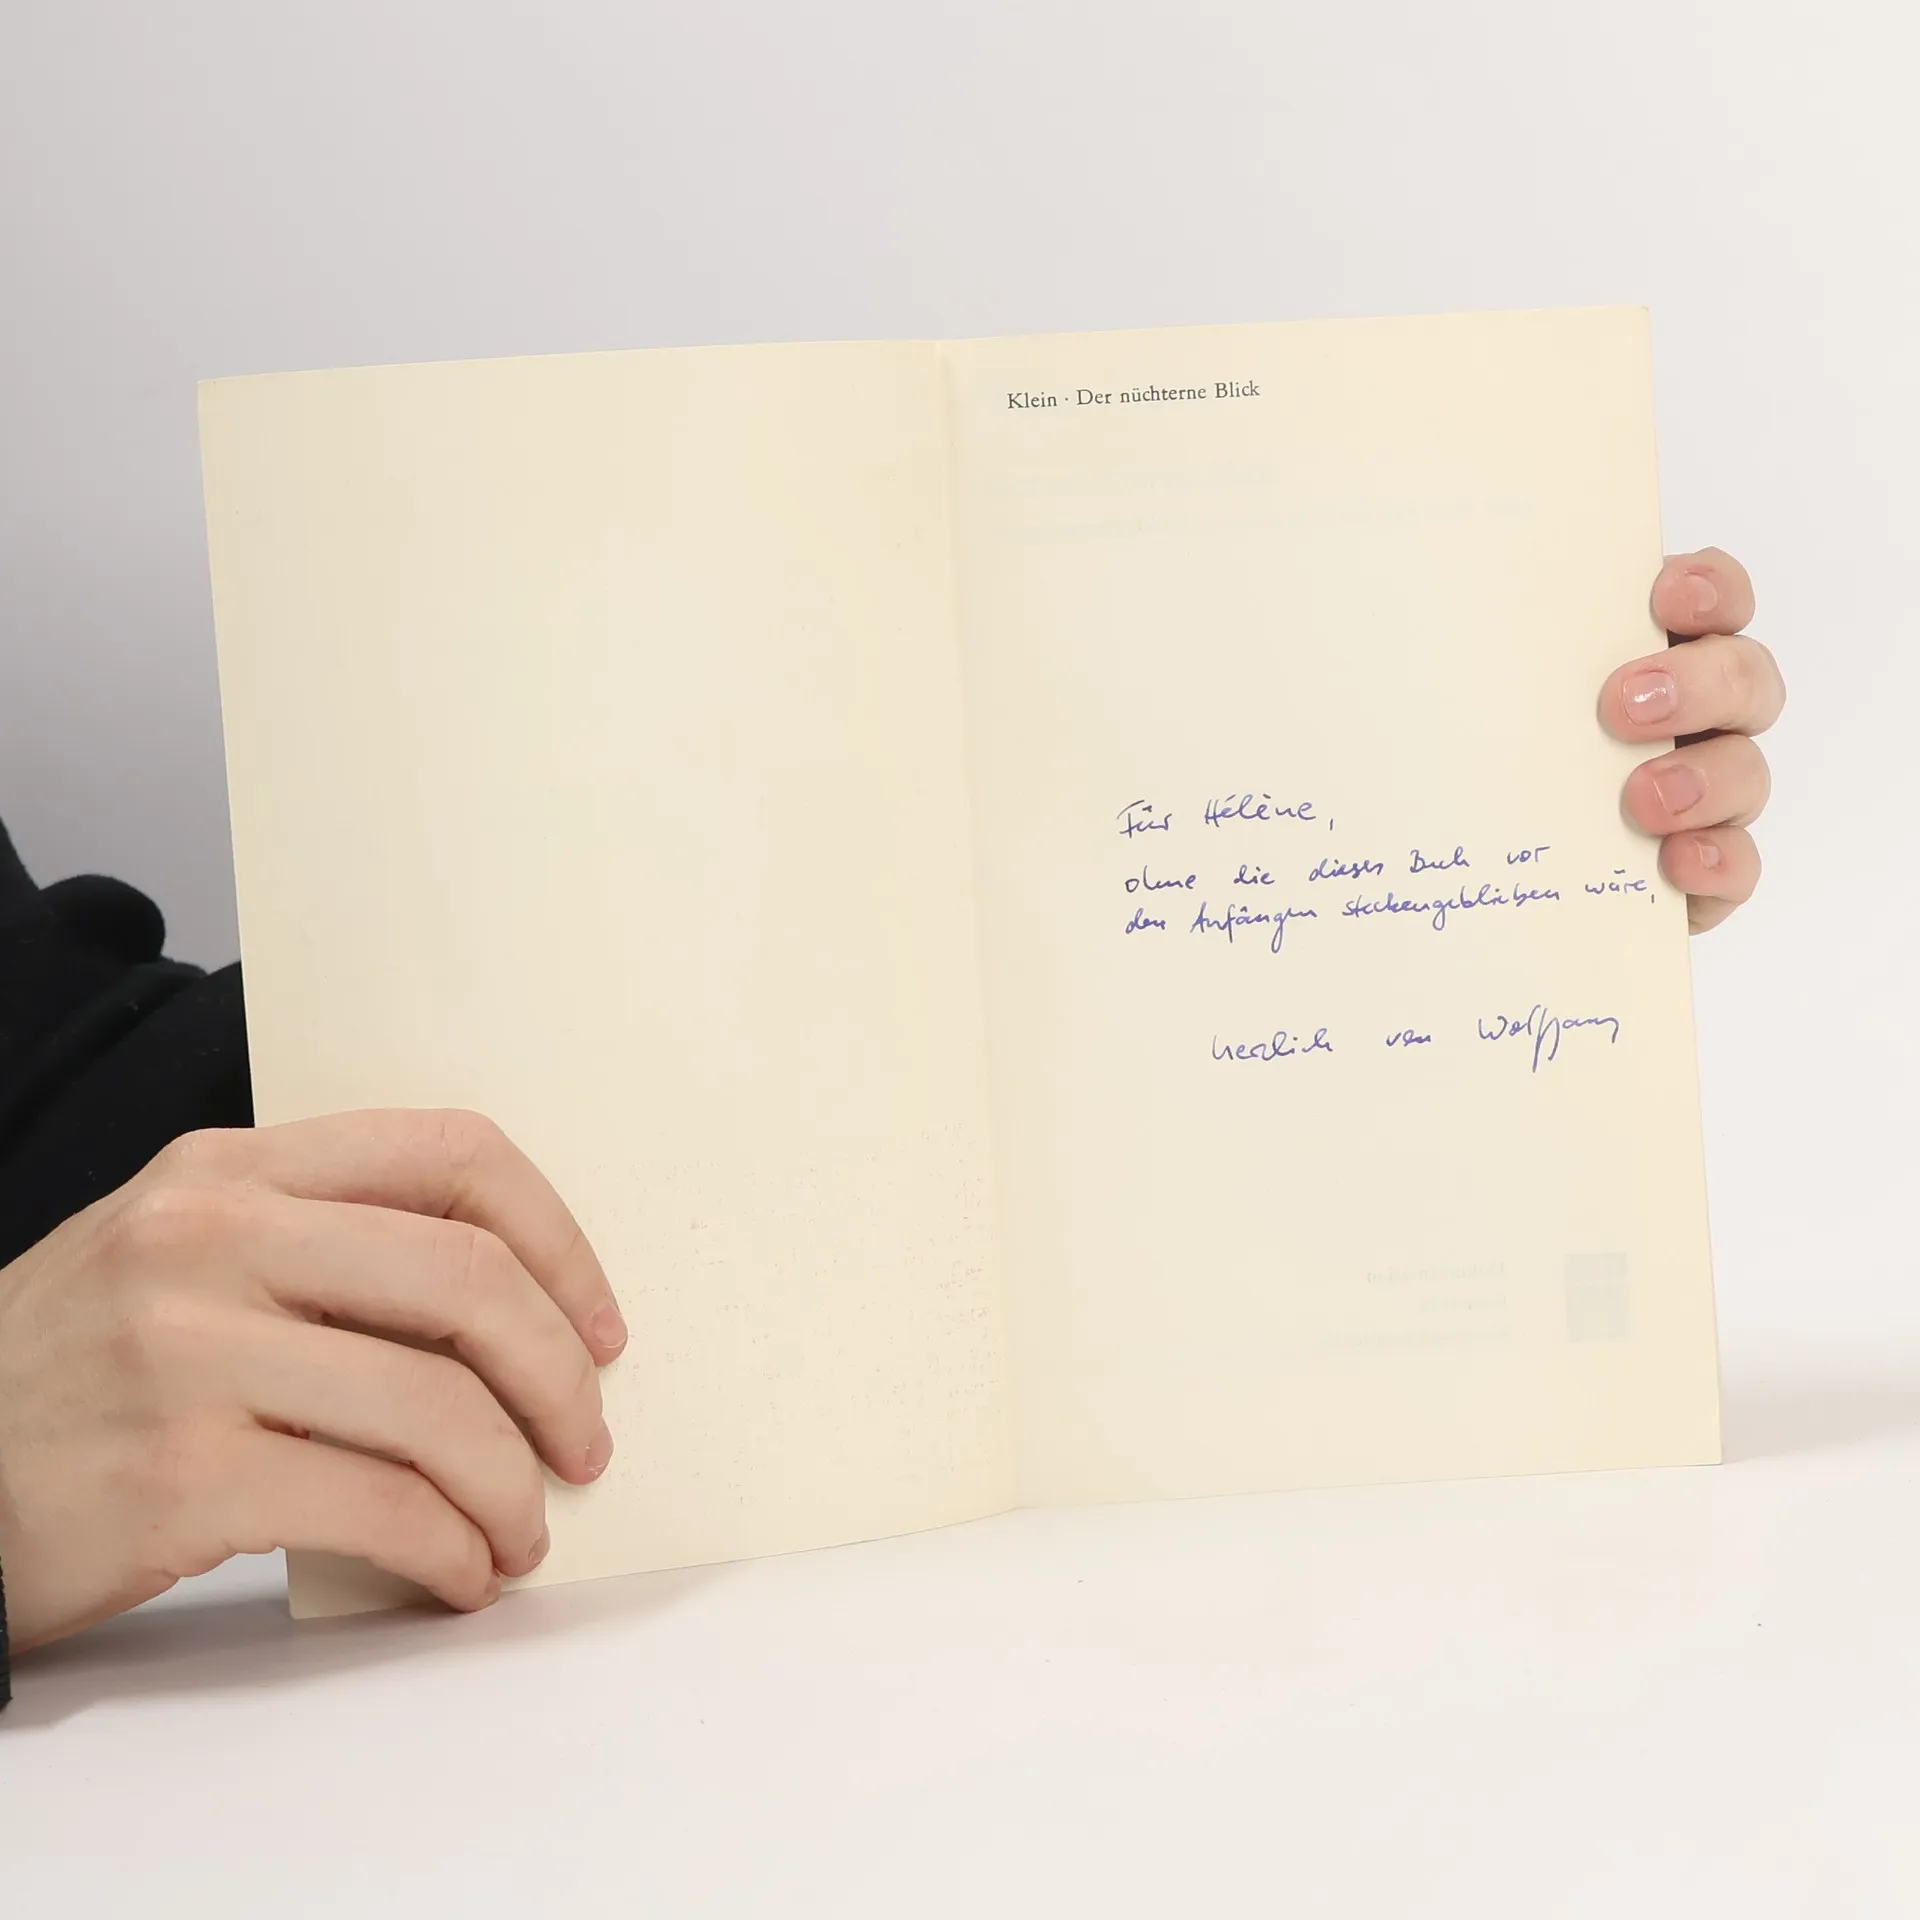 Klein · Der nüchterne Blick
Für Hélène,
ohne die dieses Buch vor
den Anfängen steckengeblieben wäre,
herzlich von Wolfgang